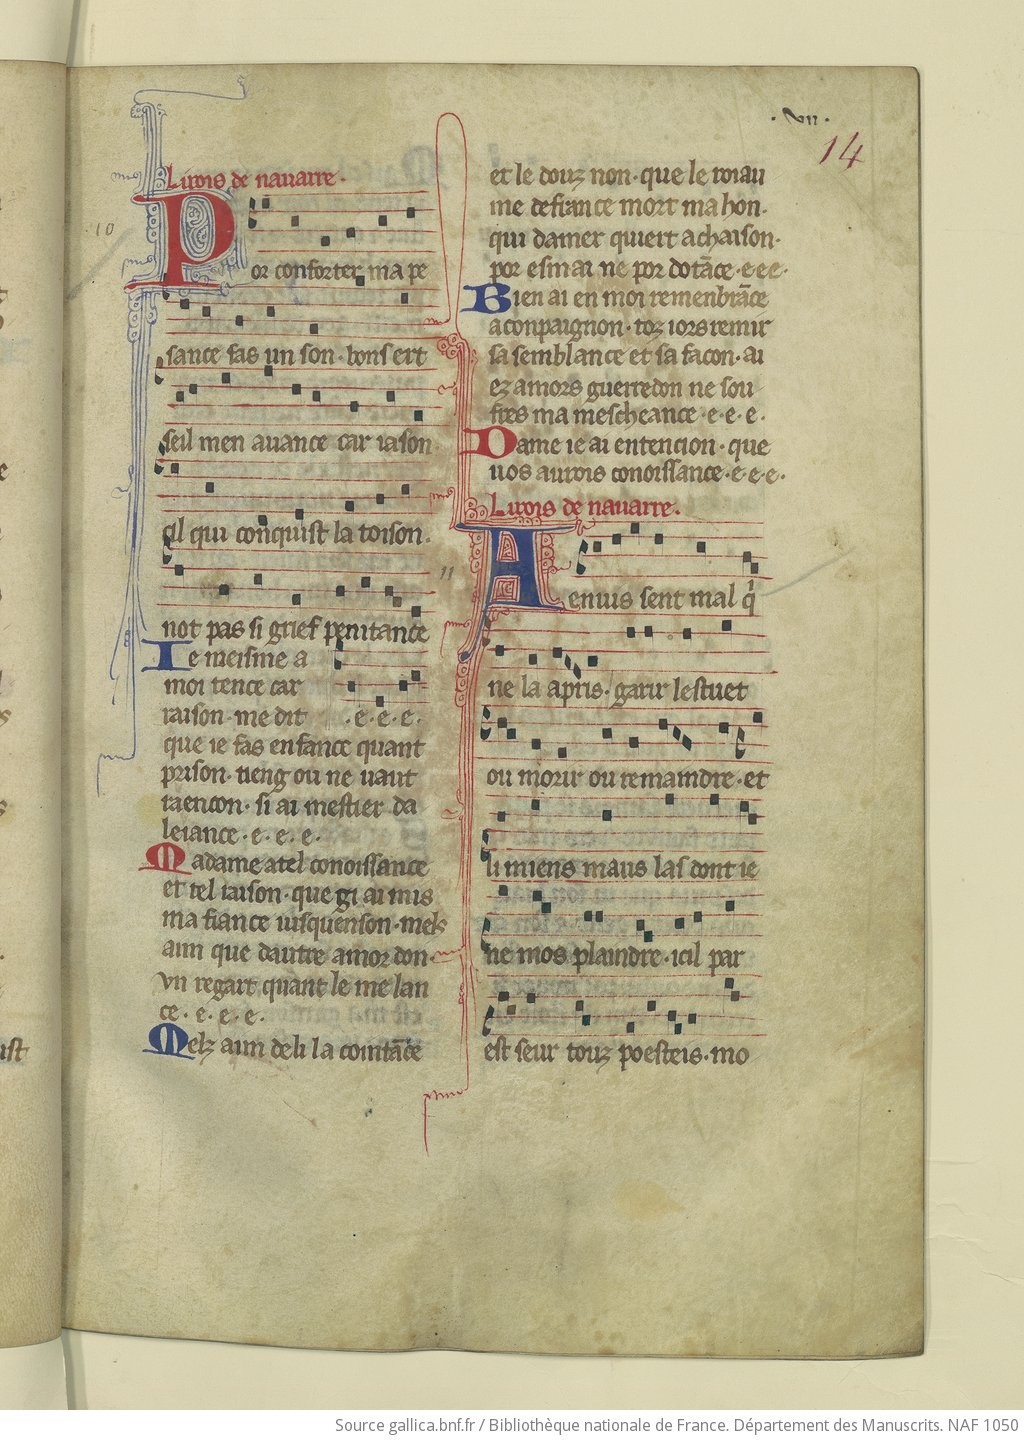 ·vii·
14
Li rois de nauarre·
10
Por conforter ma pe
sance fas un son· bons ert
seil men auance car iason
cil qui conquist la toison·
not pas si grief penitance
e· e· e·
Ie meisme a
moi tence car
raison· me dit · e· e· e·
que ie fas enfance quant
prison· tieng ou ne uaut
raencon· si ai mestier da
leiance· e· e· e·
Madame a tel conoissance
et tel raison· que gi ai mis
ma fiance iusquen son· mels
aim que dautre amor don·
vn regart quant le me lan
ce· e· e· e·
Melz aim de li la cointāce
et le douz non· que le roiau
me de france mort mahon·
qui damer quiert achaison·
por esmai ne por dotāce· e· e e·
Bien ai en moi remenbrāce
a conpaignon· toz iors remir
sa semblance et sa facon· ai
ez amors guerredon ne sou
fres ma mescheance· e· e· e·
Dame ie ai entencion· que
uos aurois conoissance· e· e· e·
Li rois de nauarre·
11
A enuis sent mal q̇
ne la apris· garir lestuet
ou morir ou remaindre· et
li miens maus las dont ie
ne mos plaindre· icil par
est seur touz poesteis· mo
Source gallica.bnf.fr / Bibliothèque nationale de France. Département des Manuscrits. NAF 1050